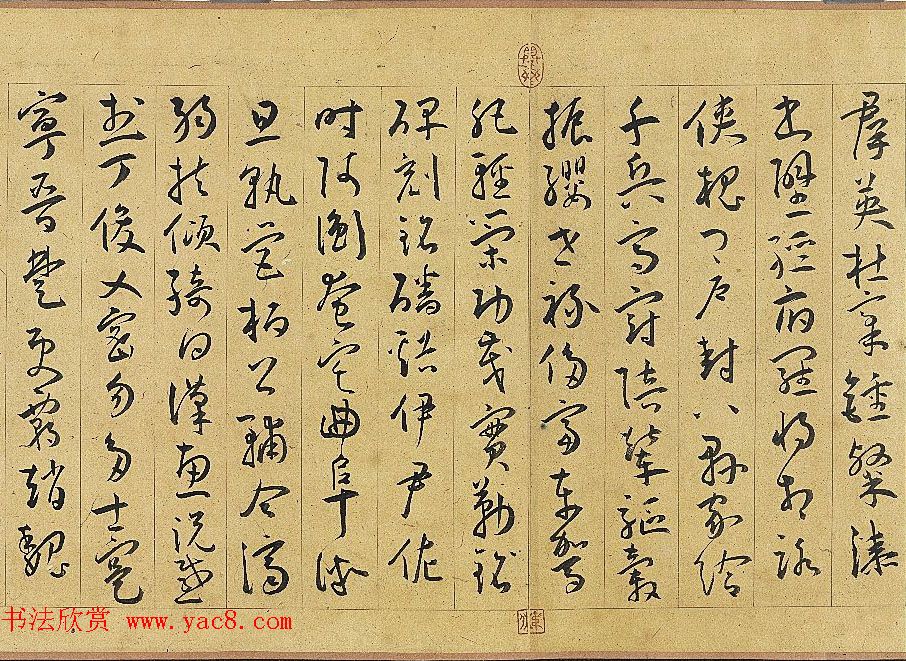 群英杜稾鍾隸漆
書壁經府羅將相路
俠槐卿戶封八縣家給
千兵高冠陪輦驅轂
振纓世祿侈富車駕
肥輕策功茂實勒銘
碑刻銘磻谿伊尹佐
時阿衡奄宅曲阜微
旦孰營桓公輔合濟
弱扶傾綺迴漢惠說感
武丁俊乂密勿多士寔
寧晉楚更霸趙魏
书法欣赏 www.yac8.com